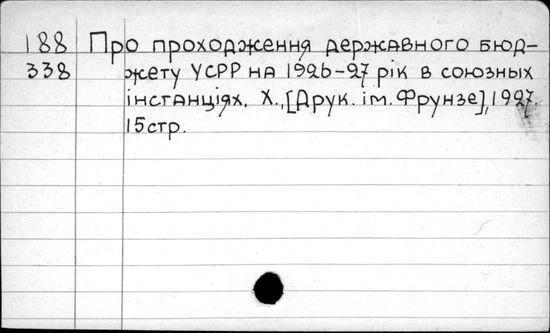 188 Про проходження державного бюд-
338 жету УСРР на 1926-27 рік в союзных
інстанціях. Х., [Друк. ім. Фрунзе], 1927.
15стр.